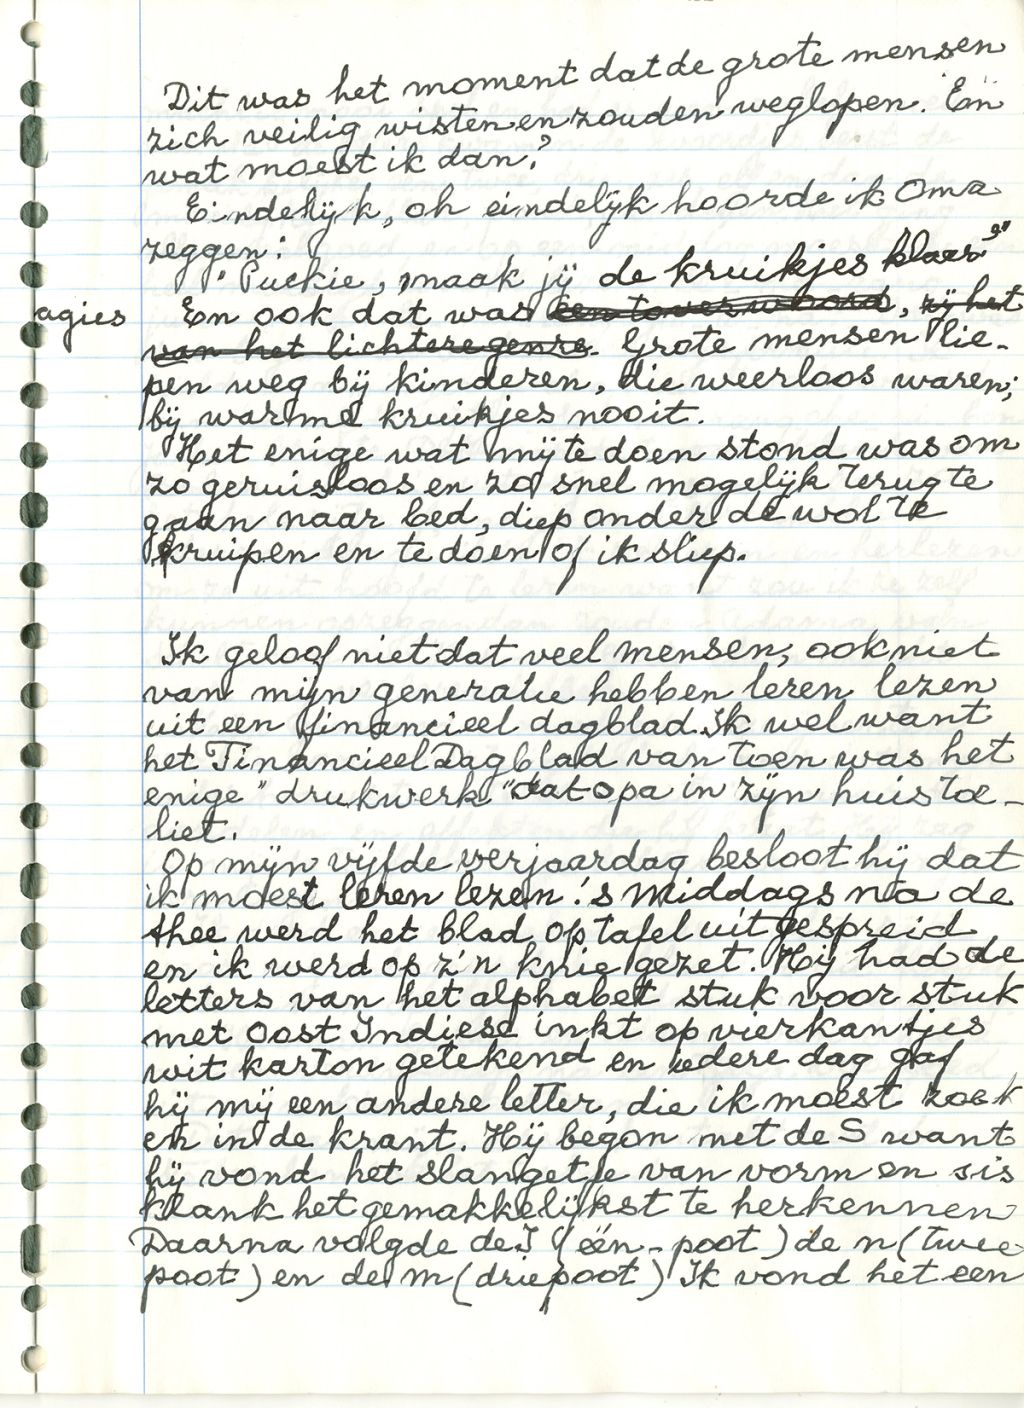 Dit was het moment dat de grote mensen
zich veilig wisten en zouden weglopen. En
wat moest ik dan?
Eindelijk, oh eindelijk hoorde ik Oma
zeggen:
"Puckie, maak jij de kruikjes klaar?"
agies En ook dat was een toverwoord, zij het
van het lichtere genre. Grote mensen lie-
pen weg bij kinderen, die weerloos waren;
bij warme kruikjes nooit.
Het enige wat mij te doen stond was om
zo geruisloos en zo snel mogelijk terug te
gaan naar bed, diep onder de wol te
kruipen en te doen of ik sliep.
Ik geloof niet dat veel mensen, ook niet
van mijn generatie hebben leren lezen
uit een financieel dagblad. Ik wel want
het Financieel Dagblad van toen was het
enige "drukwerk" dat opa in zijn huis toe-
liet.
Op mijn vijfde verjaardag besloot hij dat
ik moest leren lezen. 's Middags na de
thee werd het blad op tafel uitgespreid
en ik werd op z'n knie gezet. Hij had de
letters van het alphabet stuk voor stuk
met Oost Indiese inkt op vierkantjes
wit karton getekend en iedere dag gaf
hij mij een andere letter, die ik moest zoek
en in de krant. Hij begon met de S want
hij vond het slangetje van vorm en sis
klank het gemakkelijkst te herkennen
Daarna volgde de I (één-poot) de n (twee
poot) en de m (driepoot) Ik vond het een